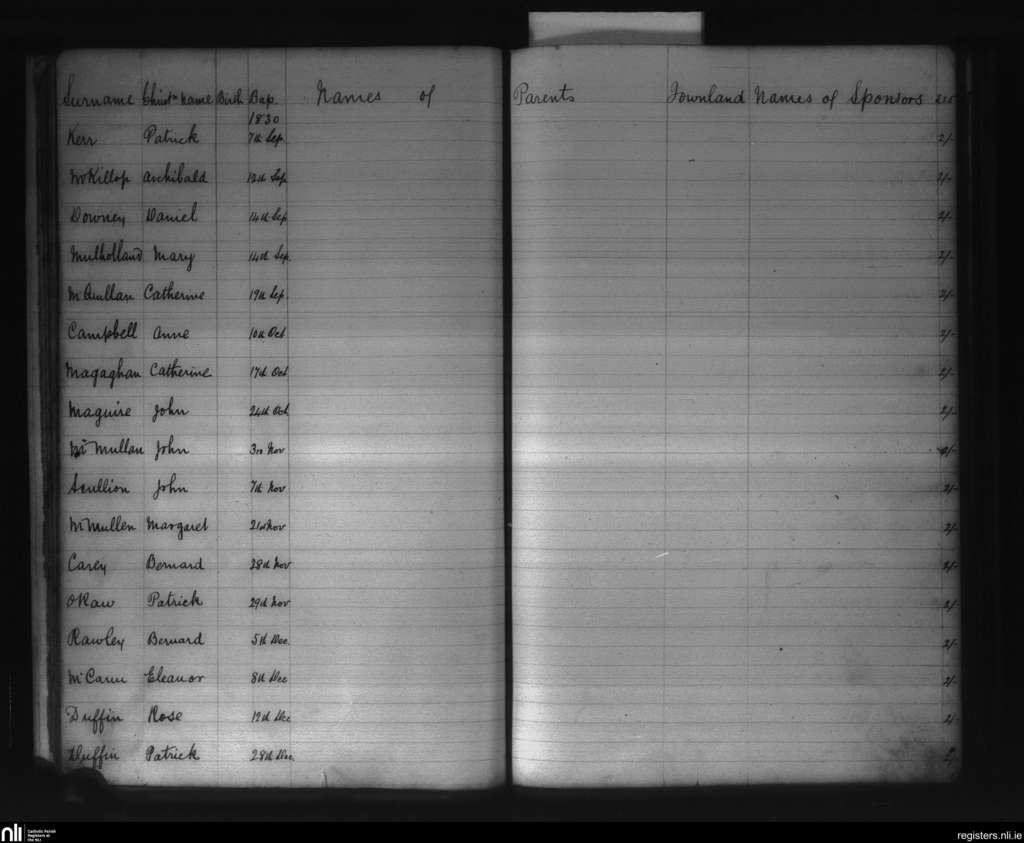 Surname Christn name Birth Bap. Names of Parents Townland Names of Sponsors
1830
Kerr Patrick 7th Sep 2/-
McKillop Archibald 12th Sep 2/-
Downey Daniel 14th Sep 2/-
Mulholland Mary 14th Sep. 2/-
McQuillan Catherine 19th Sep. 2/-
Campbell Anne 10th Oct 2/-
Magaghan Catherine 17th Oct 2/-
Maguire John 24th Oct 2/-
McMullan John 3rd Nov 2/-
Scullion John 7th Nov 2/-
McMullen Margaret 21st Nov 2/-
Carey Bernard 28th Nov 2/-
OKaw Patrick 29th Nov 2/-
Rawley Bernard 5th Dec. 2/-
McCann Eleanor 8th Dec 2/-
Duffin Rose 12th Dec 2/-
Duffin Patrick 28th Dec. 2/-
nli Catholic Parish
Registers at
the NLI
registers.nli.ie